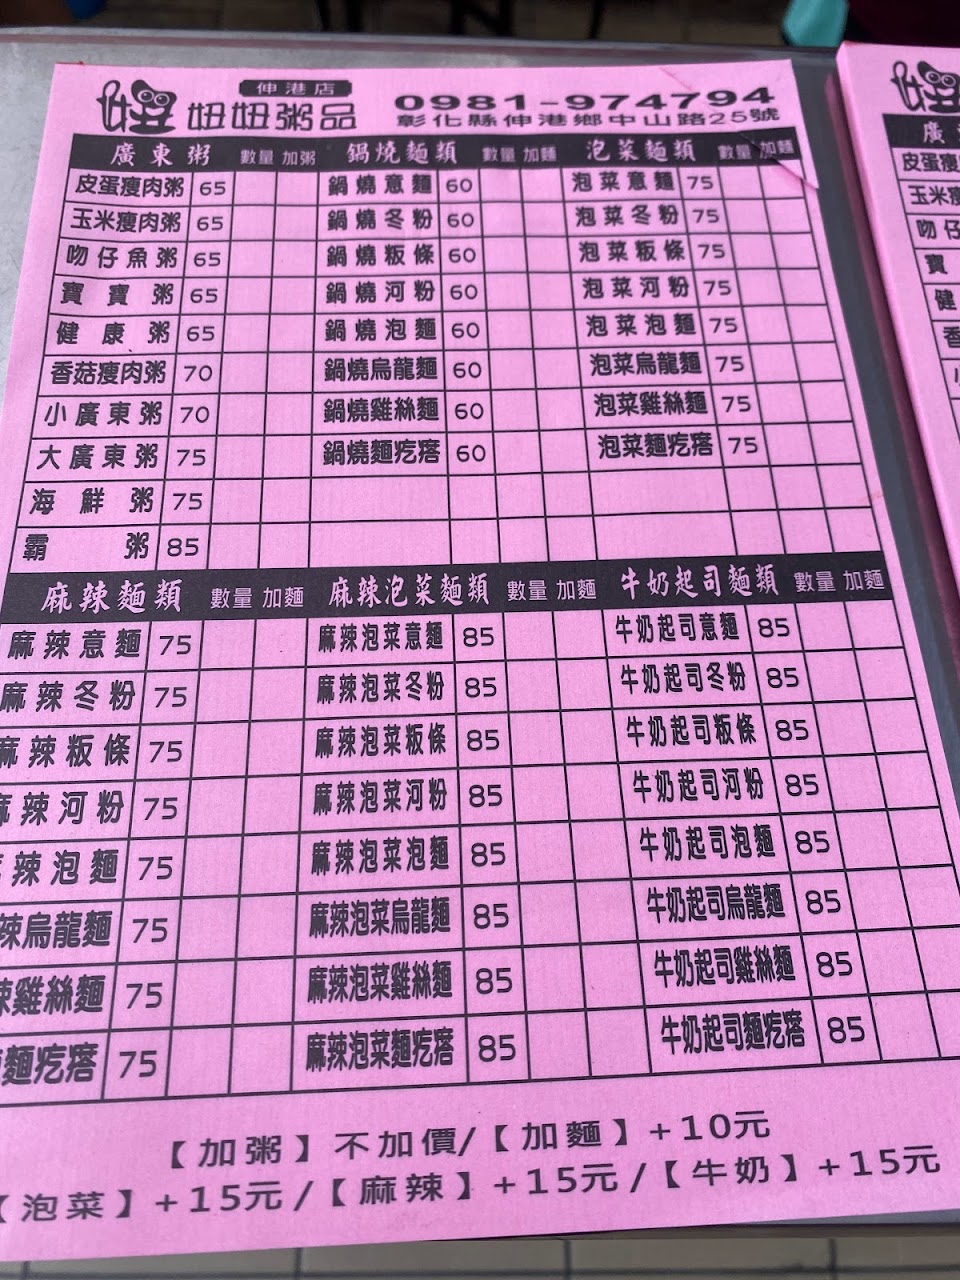 妞 妞妞粥品 伸港店 0981-974794
彰化縣伸港鄉中山路25號
廣東粥 數量 加粥 鍋燒麵類 數量 加麵 泡菜麵類 數量 加麵
皮蛋瘦肉粥 65 鍋燒意麵 60 泡菜意麵 75
玉米瘦肉粥 65 鍋燒冬粉 60 泡菜冬粉 75
吻仔魚粥 65 鍋燒粄條 60 泡菜粄條 75
寶寶粥 65 鍋燒河粉 60 泡菜河粉 75
健康粥 65 鍋燒泡麵 60 泡菜泡麵 75
香菇瘦肉粥 70 鍋燒烏龍麵 60 泡菜烏龍麵 75
小廣東粥 70 鍋燒雞絲麵 60 泡菜雞絲麵 75
大廣東粥 75 鍋燒麵疙瘩 60 泡菜麵疙瘩 75
海鮮粥 75
霸粥 85
麻辣麵類 數量 加麵 麻辣泡菜麵類 數量 加麵 牛奶起司麵類 數量 加麵
麻辣意麵 75 麻辣泡菜意麵 85 牛奶起司意麵 85
麻辣冬粉 75 麻辣泡菜冬粉 85 牛奶起司冬粉 85
麻辣粄條 75 麻辣泡菜粄條 85 牛奶起司粄條 85
麻辣河粉 75 麻辣泡菜河粉 85 牛奶起司河粉 85
辣泡麵 75 麻辣泡菜泡麵 85 牛奶起司泡麵 85
辣烏龍麵 75 麻辣泡菜烏龍麵 85 牛奶起司烏龍麵 85
辣雞絲麵 75 麻辣泡菜雞絲麵 85 牛奶起司雞絲麵 85
麵疙瘩 75 麻辣泡菜麵疙瘩 85 牛奶起司麵疙瘩 85
【加粥】不加價/【加麵】+10元
【泡菜】+15元/【麻辣】+15元/【牛奶】+15元
廣
皮蛋瘦
玉米瘦
吻仔
寶
健
香
小